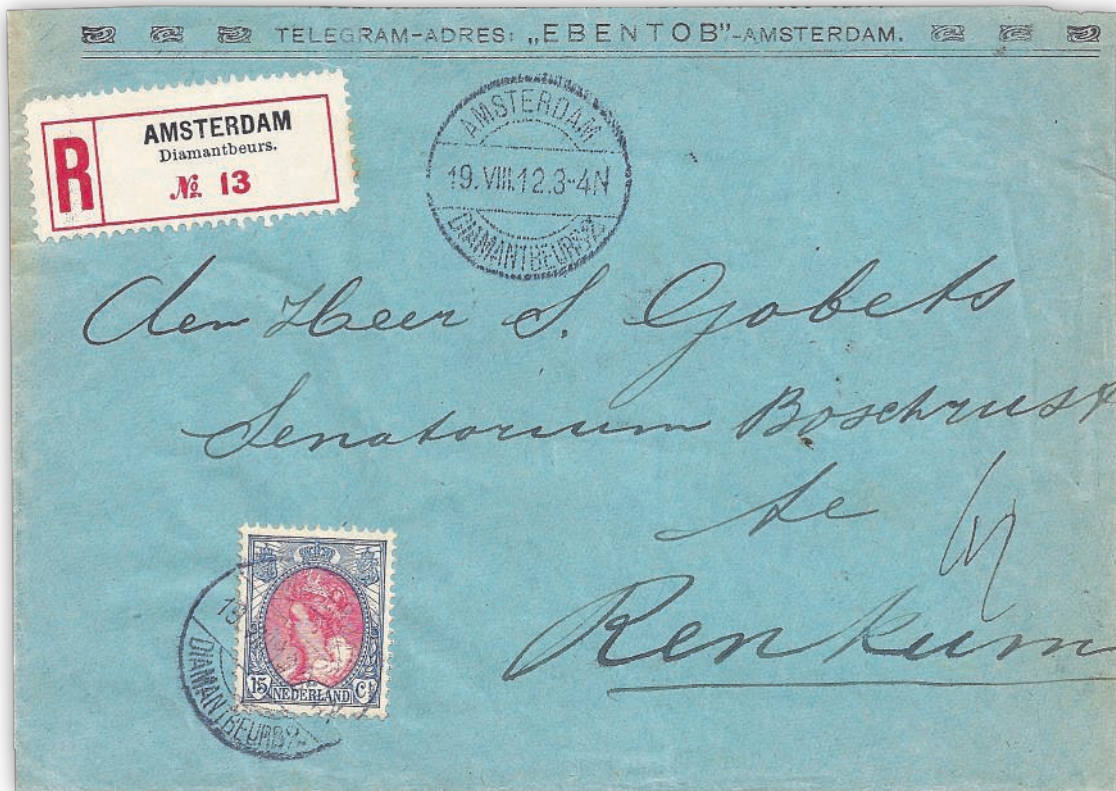 TELEGRAM-ADRES: „EBENTOB”-AMSTERDAM.
R
AMSTERDAM
Diamantbeurs.
№ 13
AMSTERDAM
19.VIII.12.3-4N
DIAMANTBEURS
den Heer S. Gobets
Senatorium Boschrust
te
Renkum
15 NEDERLAND Ct
DIAMANTBEURS